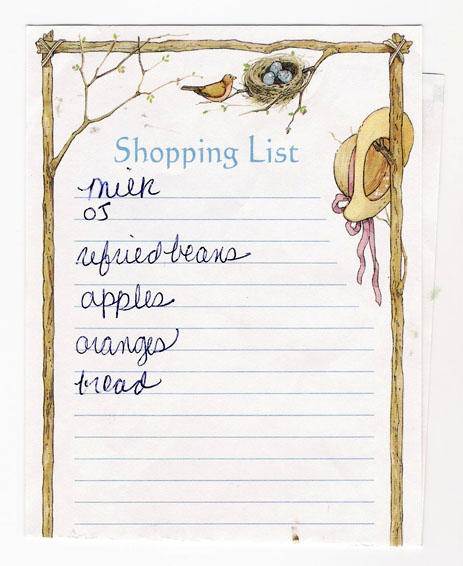 Shopping List
milk
OJ
refried beans
apples
oranges
bread